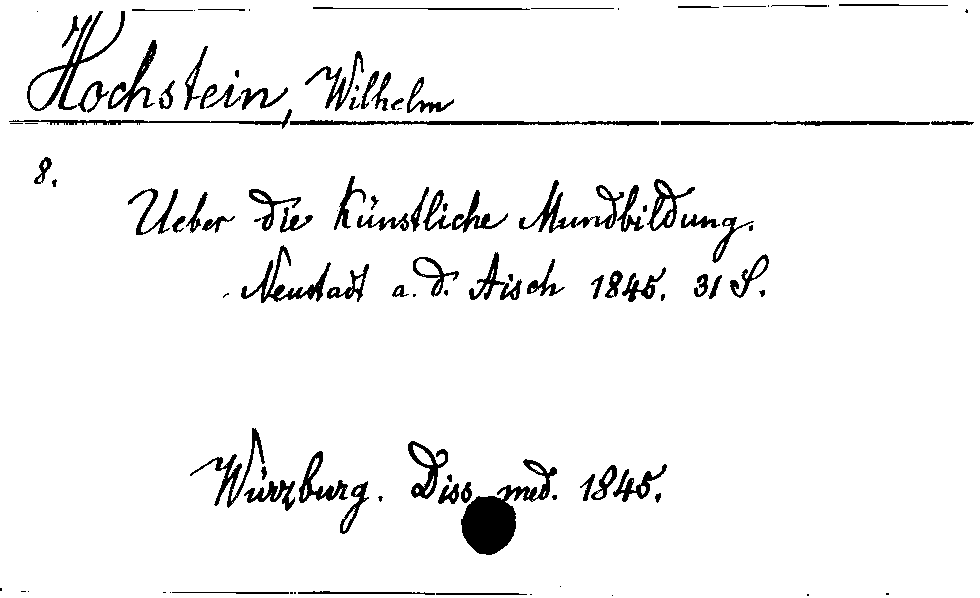 Hochstein, Wilhelm
8.
Ueber die künstliche Mundbildung.
Neustadt a. d. Aisch 1845. 31 S.
Würzburg. Diss. med. 1845.